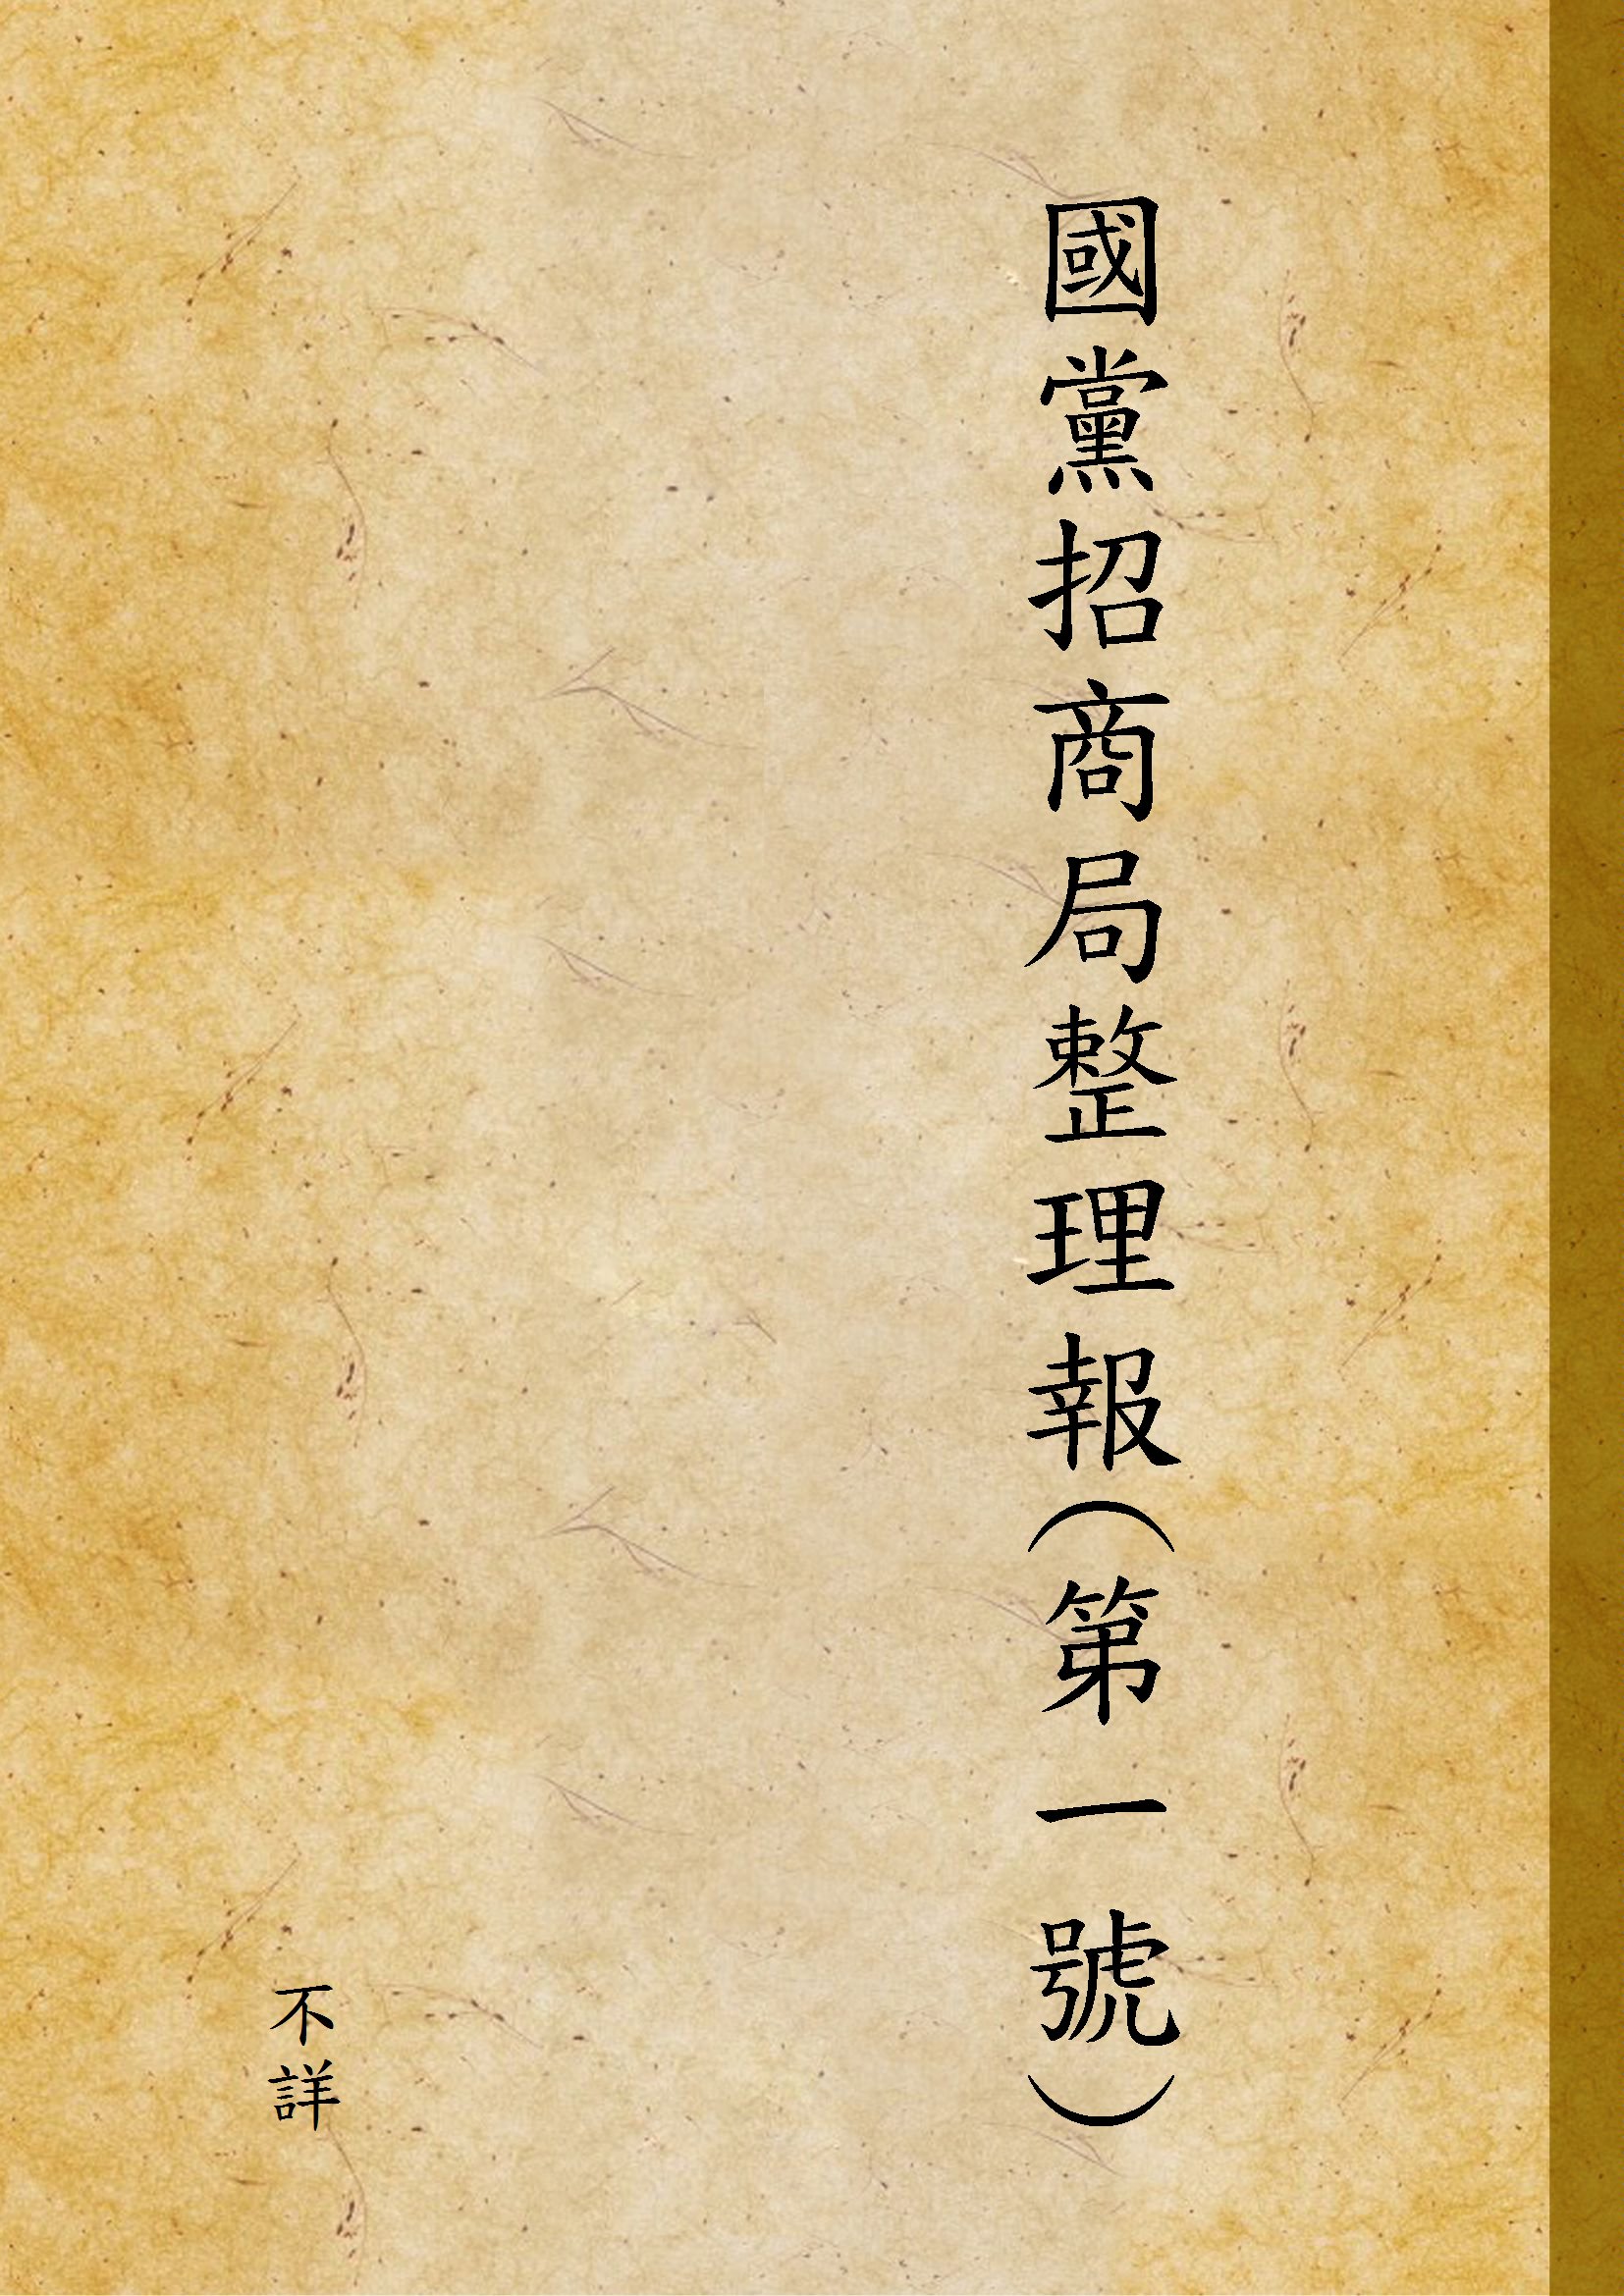 國黨招商局整理報（第一號）
不詳